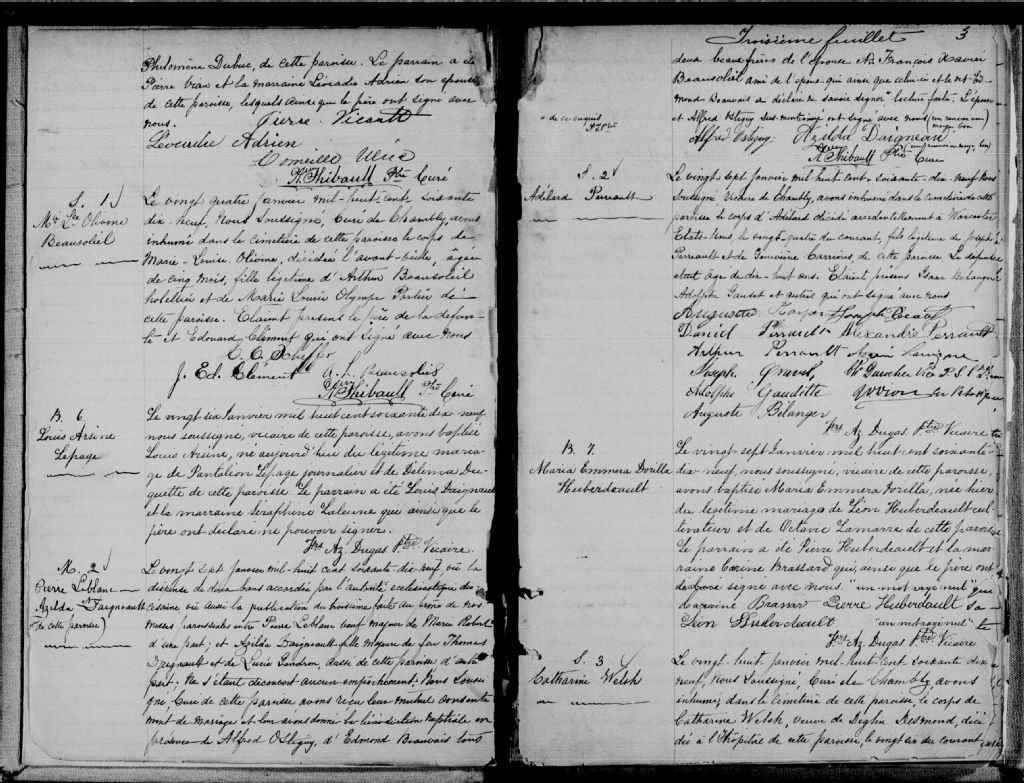 Philomène Dubuc, de cette paroisse. Le parrain a été
Pierre Viau et la marraine Léocadie Adrien son épouse
de cette paroisse, lesquels ainsi que le père ont signé avec
nous. Pierre
Adrien
Corneille
A. Thibault Ptre Curé
S. 1
Mie Lse Olivine
Beausoleil
Le vingt quatre janvier mil-huit-cent-soixante
dix-neuf, Nous Soussigné, Curé de Chambly, avons
inhumé dans le cimetière de cette paroisse le corps de
Marie-Louise Olivine, décédée l'avant-veille, âgée
de cinq mois, fille légitime d'Arthur Beausoleil
hotellier et de Marie Louise Olympe Portier de
cette paroisse. Etaient présent le père de la defun-
te et Edouard Clément qui ont signé avec nous
J. Ed. Clément A. L. Beausoleil
A. Thibault Ptre Curé
B. 6.
Louis Arsène
Lepage
Le vingt six Janvier, mil huit cent soixante dix neuf
nous soussigné, vicaire de cette paroisse, avons baptisé
Louis Arsène, né aujourd'hui du légitime maria-
ge de Pantaléon Lepage journalier et de Délima Du-
quette de cette paroisse. Le parrain a été Louis Daigneault
et la marraine Séraphine Lalenne que ainsi que le
père ont déclaré ne pouvoir signer.
Frs Az. Dugas Ptre Vicaire.
M. 2
Pierre Leblanc
et
Azilda Daigneault
(de cette paroisse)
Le vingt sept janvier mil-huit cent soixante-dix-neuf, vu la
dispense de deux bans accordée par l'autorité ecclésiastique dio-
césaine vu aussi la publication du troisième faite au prône de nos
messes paroissiales entre Pierre Leblanc veuf majeur de Marie Robert
d'une part; et Azilda Daigneault fille majeure de feu Thomas
Daigneault et de Lucie Gendron, aussi de cette paroisse d'autre
part. Ne s'étant découvert aucun empêchement. Nous Soussi-
gné, Curé de cette paroisse avons reçu leur mutuel consente
ment de mariage et leur avons donné la bénédiction nuptiale en
présence de Alfred Ostiguy, d'Edmond Beauvais tous
Troisième feuillet 3
deux beaux frères de l'épouse de François Xavier
Beausoleil ami de l'époux qui ainsi que celui-ci et le dit Ed-
mond Beauvais a déclaré
- de ce enquis
savoir signer lecture faite. L'épouse
et Alfred Ostiguy sus-mentionné ont signé avec nous
Alfred Ostiguy Azilda Daigneau
A. Thibault Ptre Curé
S. 2
Adélard Perreault
Le vingt sept janvier mil-huit-cent-soixante-dix-neuf Nous
Soussigné Vicaire de Chambly, avons inhumé dans le cimetière de cette
paroisse le corps d'Adélard décédé accidentellement à Worcester
Etats-Unis le vingt-quatre du courant, fils légitime de Joseph
Perrault et de Geneviève Carrières, de cette paroisse. Le defunt
était âgé de dix-huit ans. Etaient présens Isaac Bélanger
Adolphe Gaudet et autres qui ont signé avec nous
Auguste Joseph
Daniel Perrault Alexandre Perrault
Arthur Perrault
Joseph Gravel
Adolphe Gaudette
Auguste Bélanger
Frs Az. Dugas Ptre Vicaire
B. 7.
Maria Emmera Dorilla
Huberdeault
Le vingt-sept Janvier mil huit cent soixante-
dix-neuf, nous soussigné, vicaire de cette paroisse,
avons baptisé Maria Emmera Dorilla, née hier
du légitime mariage de Léon Huberdeault cul-
tivateur et de Octavie Lamarre de cette paroisse
Le parrain a été Pierre Huberdeault et la mar-
raine Corine Brassard qui, ainsi que le père ont
signé avec nous. "un mot rayé nul"
Brassar Pierre Huberdault
Léon Huberdeault "un mot rayé nul"
Frs Az. Dugas Ptre Vicaire
S. 3
Catharine Welsh
Le vingt huit janvier mil-huit-cent soixante dix
neuf, Nous Soussigné Curé de Chambly, avons
inhumé, dans le cimetière de cette paroisse, le corps de
Catharine Welsh, veuve de Desmond, décé
dée à l'Hopital de cette paroisse, le vingt six du courant